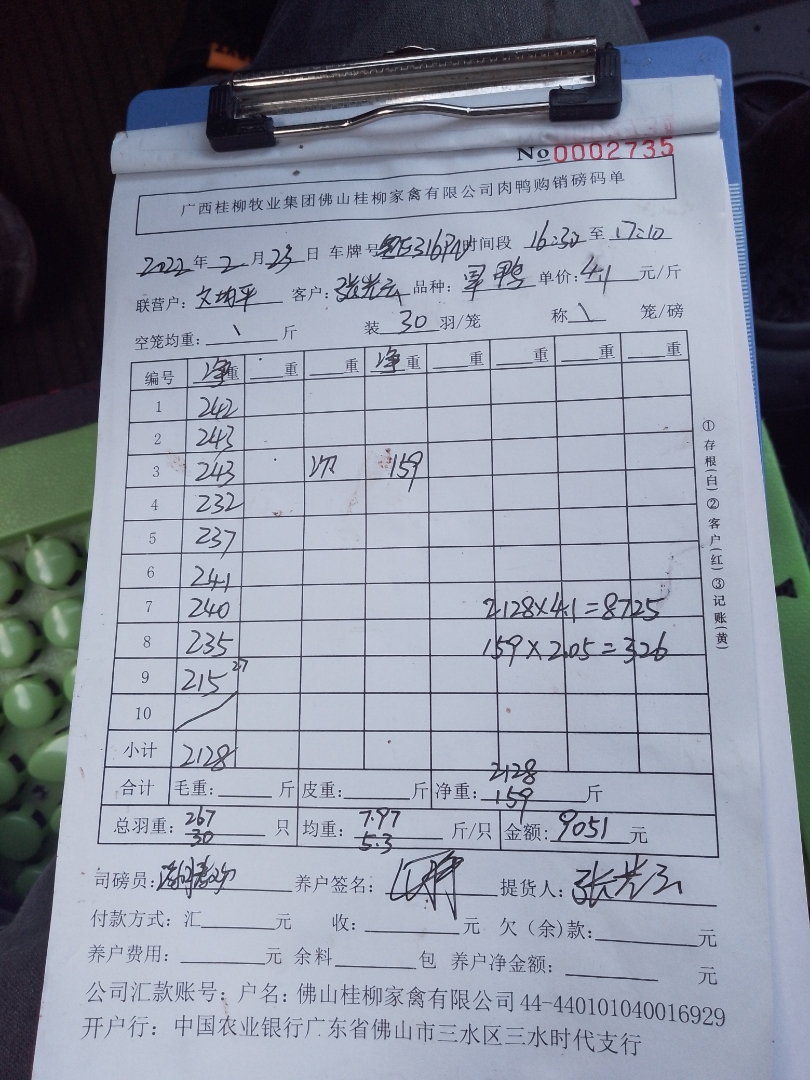 No 0002735
广西桂柳牧业集团佛山桂柳家禽有限公司肉鸭购销磅码单
2022年2月23日 车牌号 E316 时间段 16:30 至 17:10
联营户: 文均平 客户: 张光云 品种: 军鸭 单价: 4.1 元/斤
空笼均重: \ 斤 装 30 羽/笼 称 \ 笼/磅
编号 净重 重 重 净重 重 重 重 重
1 242
2 243
3 243 次 159
4 232
5 237
6 241
7 240 2128×4.1=8725
8 235 159×2.05=326
9 215 27
10
小计 2128
合计 毛重: 斤 皮重: 斤 净重: 2128 159 斤
总羽重: 267 30 只 均重: 7.97 5.3 斤/只 金额: 9051 元
司磅员: 养户签名: 提货人: 张光云
付款方式: 汇 元 收: 元 欠(余)款: 元
养户费用: 元 余料 包 养户净金额: 元
公司汇款账号: 户名: 佛山桂柳家禽有限公司 44-440101040016929
开户行: 中国农业银行广东省佛山市三水区三水时代支行
①存根(白)②客户(红)③记账(黄)